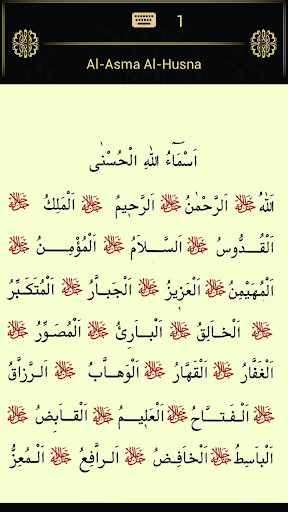 1
Al-Asma Al-Husna
اَسْمَٓاءُ اللّٰهِ الْحُسْنٰى
اَللّٰهُ ﷻ اَلرَّحْمٰنُ ﷻ اَلرَّحٖيمُ ﷻ اَلْمَلِكُ ﷻ
اَلْقُدُّوسُ ﷻ اَلسَّلَامُ ﷻ اَلْمُؤْمِنُ ﷻ
اَلْمُهَيْمِنُ ﷻ اَلْعَزِيزُ ﷻ اَلْجَبَّارُ ﷻ اَلْمُتَكَبِّرُ
ﷻ اَلْخَالِقُ ﷻ اَلْبَارِئُ ﷻ اَلْمُصَوِّرُ ﷻ
اَلْغَفَّارُ ﷻ اَلْقَهَّارُ ﷻ اَلْوَهَّابُ ﷻ اَلرَّزَّاقُ
ﷻ اَلْفَتَّاحُ ﷻ اَلْعَلِيمُ ﷻ اَلْقَابِضُ ﷻ
اَلْبَاسِطُ ﷻ اَلْخَافِضُ ﷻ اَلرَّافِعُ ﷻ اَلْمُعِزُّ